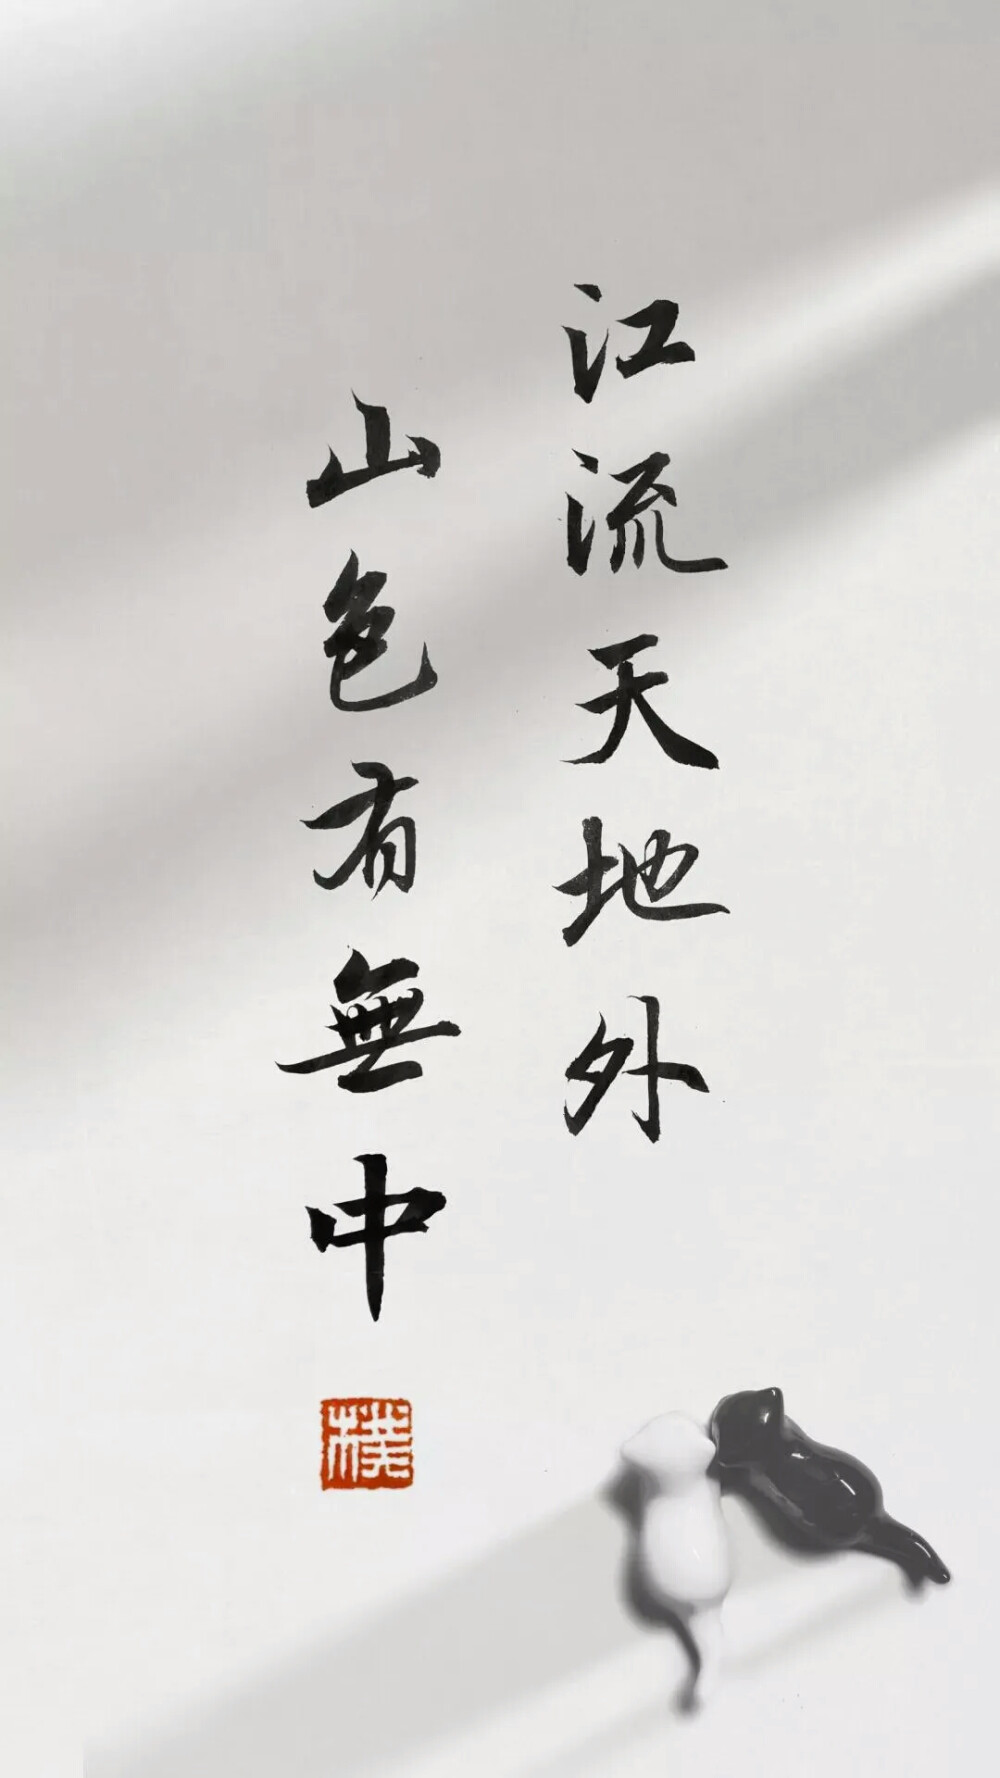 江流天地外
山色有無中
樸